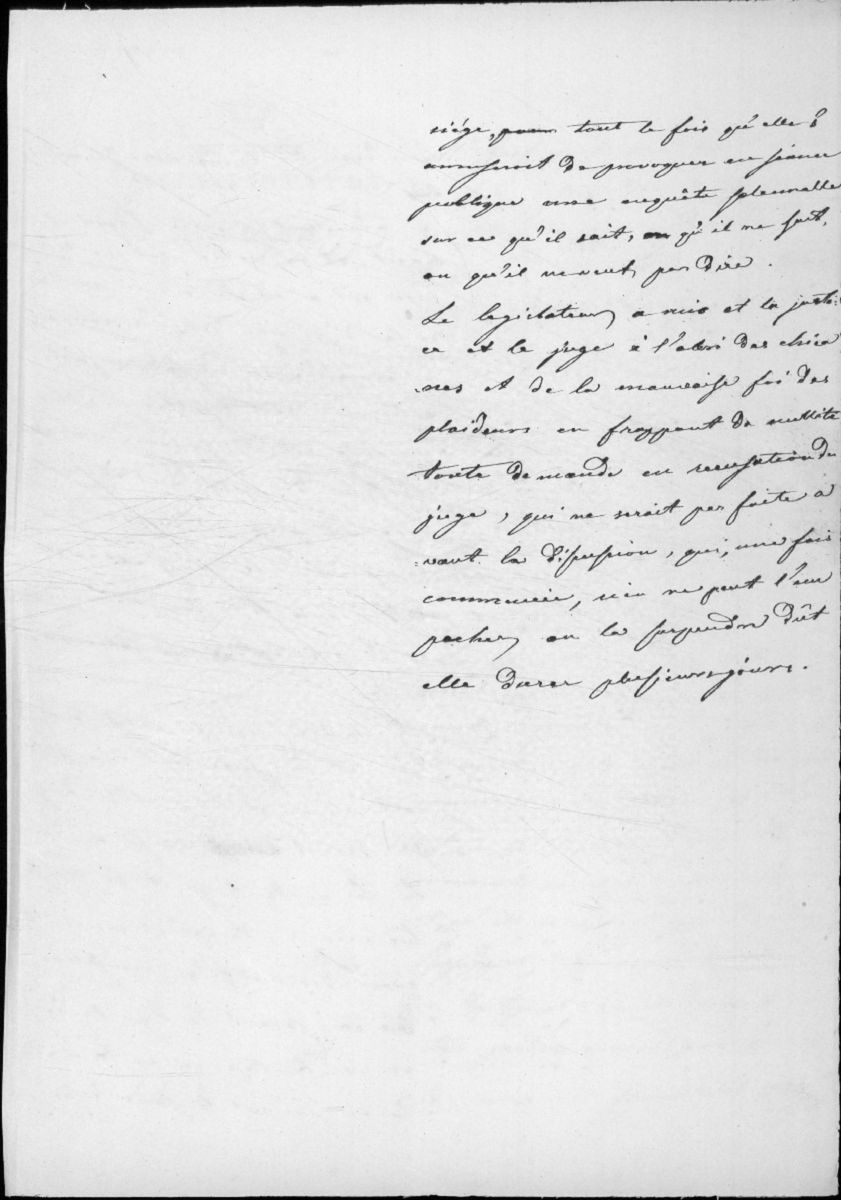 siége, pour tout le fois qu'elle s'
amuserait de provoquer en séance
publique une enquête solennelle
sur ce qu'il sait, ou qu'il ne sait,
ou qu'il ne veut pas dire.
Le législateur a mis et la justi-
ce et le juge à l'abri des chica
-nes et de la mauvaise foi des
plaideurs en frappant de nullité
toute demande en recusation du
juge, qui ne serait pas faite a
-vant la discussion, qui, une fois
commencée, rien ne peut l'em
pecher ou la suspendre dût
elle durer plusieurs jours.